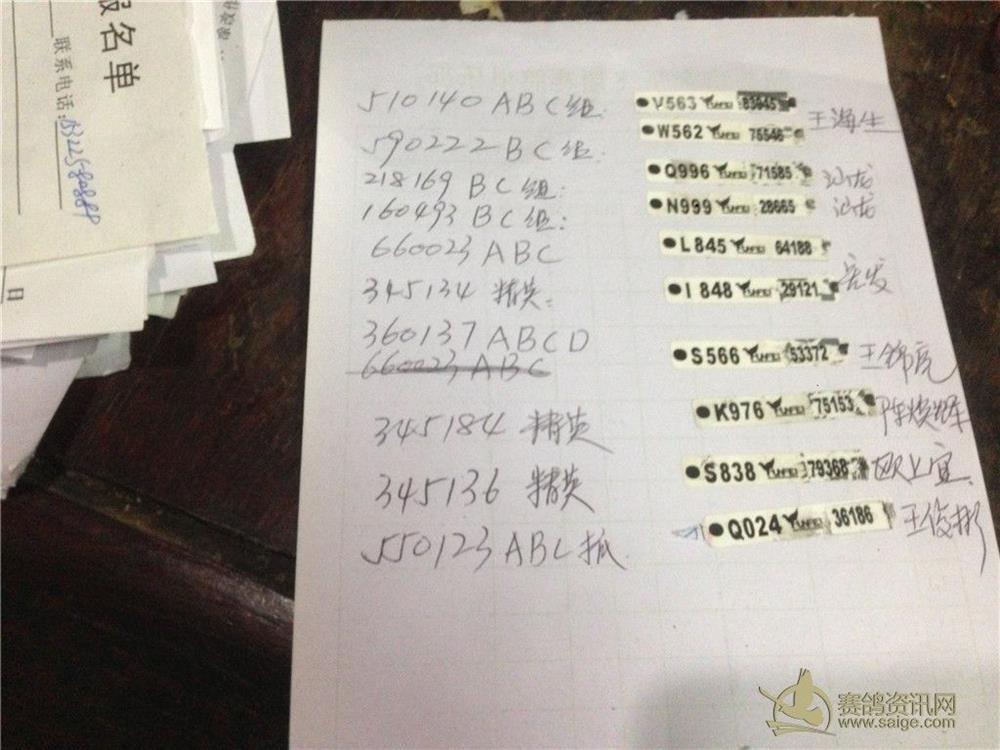 报名单
联系电话:
日
510140 ABC组 V563 83945 王海生
590222 BC组: W562 75546
218169 BC组: Q996 71585 汕龙
160493 BC组: N999 28665 汕龙
660023 ABC L845 64188
345134 精英: I 848 29121
360137 ABCD S566 53372
660023 ABC
345184 精英 K976 75153
345136 精英 S838 79368 欧上宜
550123 ABC抓 Q024 36186 王俊彬
赛鸽资讯网
www.saige.com